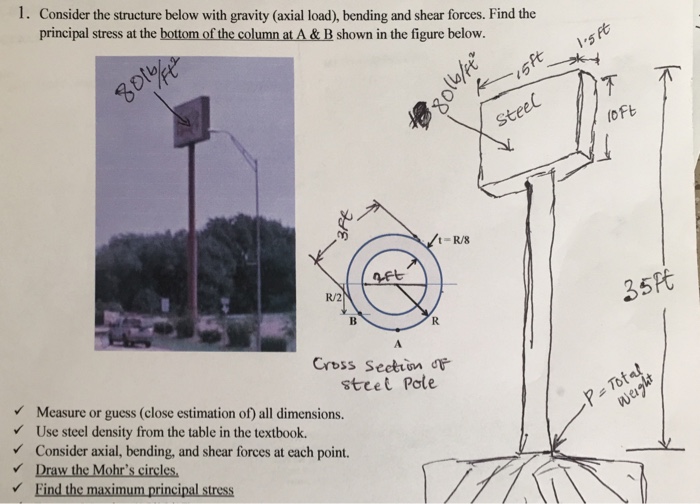 1. Consider the structure below with gravity (axial load), bending and shear forces. Find the
principal stress at the bottom of the column at A & B shown in the figure below.
80lb/ft²
80lb/ft²
15ft
1.5ft
steel
10ft
3ft
t=R/8
2ft
R/2
B
R
A
35ft
Cross Section of
steel Pole
P = Total
Weight
✓ Measure or guess (close estimation of) all dimensions.
✓ Use steel density from the table in the textbook.
✓ Consider axial, bending, and shear forces at each point.
✓ Draw the Mohr's circles.
✓ Find the maximum principal stress